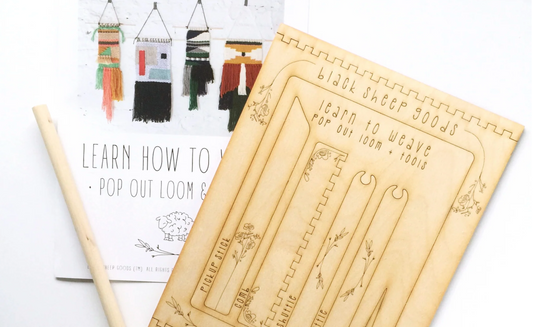 LEARN HOW TO
• POP OUT LOOM &
GOODS ALL RIGHTS
black sheep goods
learn to weave
POP OUT LOOM + TOOLS
PICKUP STICK
COMB
shuttle